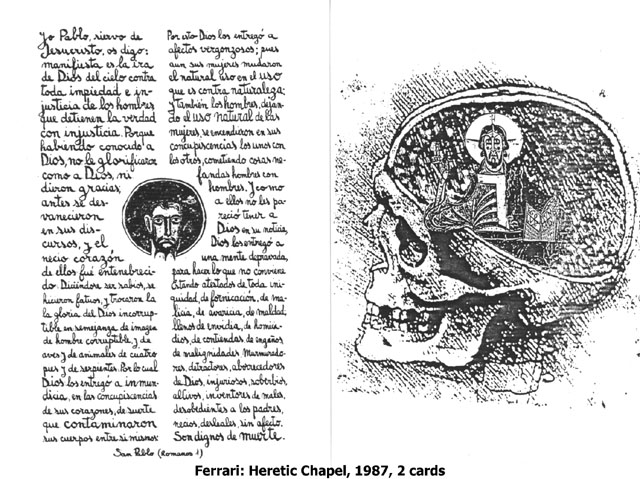 Yo Pablo, siervo de
Jesucristo, os digo:
manifiesta es la ira
de Dios del cielo contra
toda impiedad e in-
justicia de los hombres
que detienen la verdad
con injusticia. Porque
habiendo conocido a
Dios, no le glorificaron
como a Dios, ni
dieron gracias;
antes se des-
vanecieron
en sus dis-
cursos, y el
necio corazón
de ellos fué entenebreci-
do. Diciéndose ser sabios, se
hicieron fatuos, y trocaron la
la gloria del Dios incorrup-
tible en semejanza de imagen
de hombre corruptible, y de
aves y de animales de cuatro
pies y de serpientes. Por lo cual
Dios los entregó a inmun-
dicia, en las concupiscencias
de sus corazones, de suerte
que contaminaron
sus cuerpos entre sí mismos.
Por esto Dios los entregó a
afectos vergonzosos; pues
aun sus mujeres mudaron
el natural uso en el uso
que es contra naturaleza;
y también los hombres, dejan-
do el uso natural de las
mujeres, se encendieron en sus
concupiscencias los unos con
los otros, cometiendo cosas ne-
fandas hombres con
hombres. Y como
a ellos no les pa-
reció tener a
Dios en su noticia,
Dios los entregó a
una mente depravada,
para hacer lo que no conviene
Estando atestados de toda ini-
quidad, de fornicación, de ma-
licia, de avaricia, de maldad,
llenos de envidia, de homici-
dios, de contiendas de engaños,
de malignidades. Murmurado-
res, detractores, aborrecedores
de Dios, injuriosos, soberbios,
altivos, inventores de males,
desobedientes a los padres,
necios, desleales, sin afecto.
Son dignos de muerte.
San Pablo (Romanos 1)
Ferrari: Heretic Chapel, 1987, 2 cards